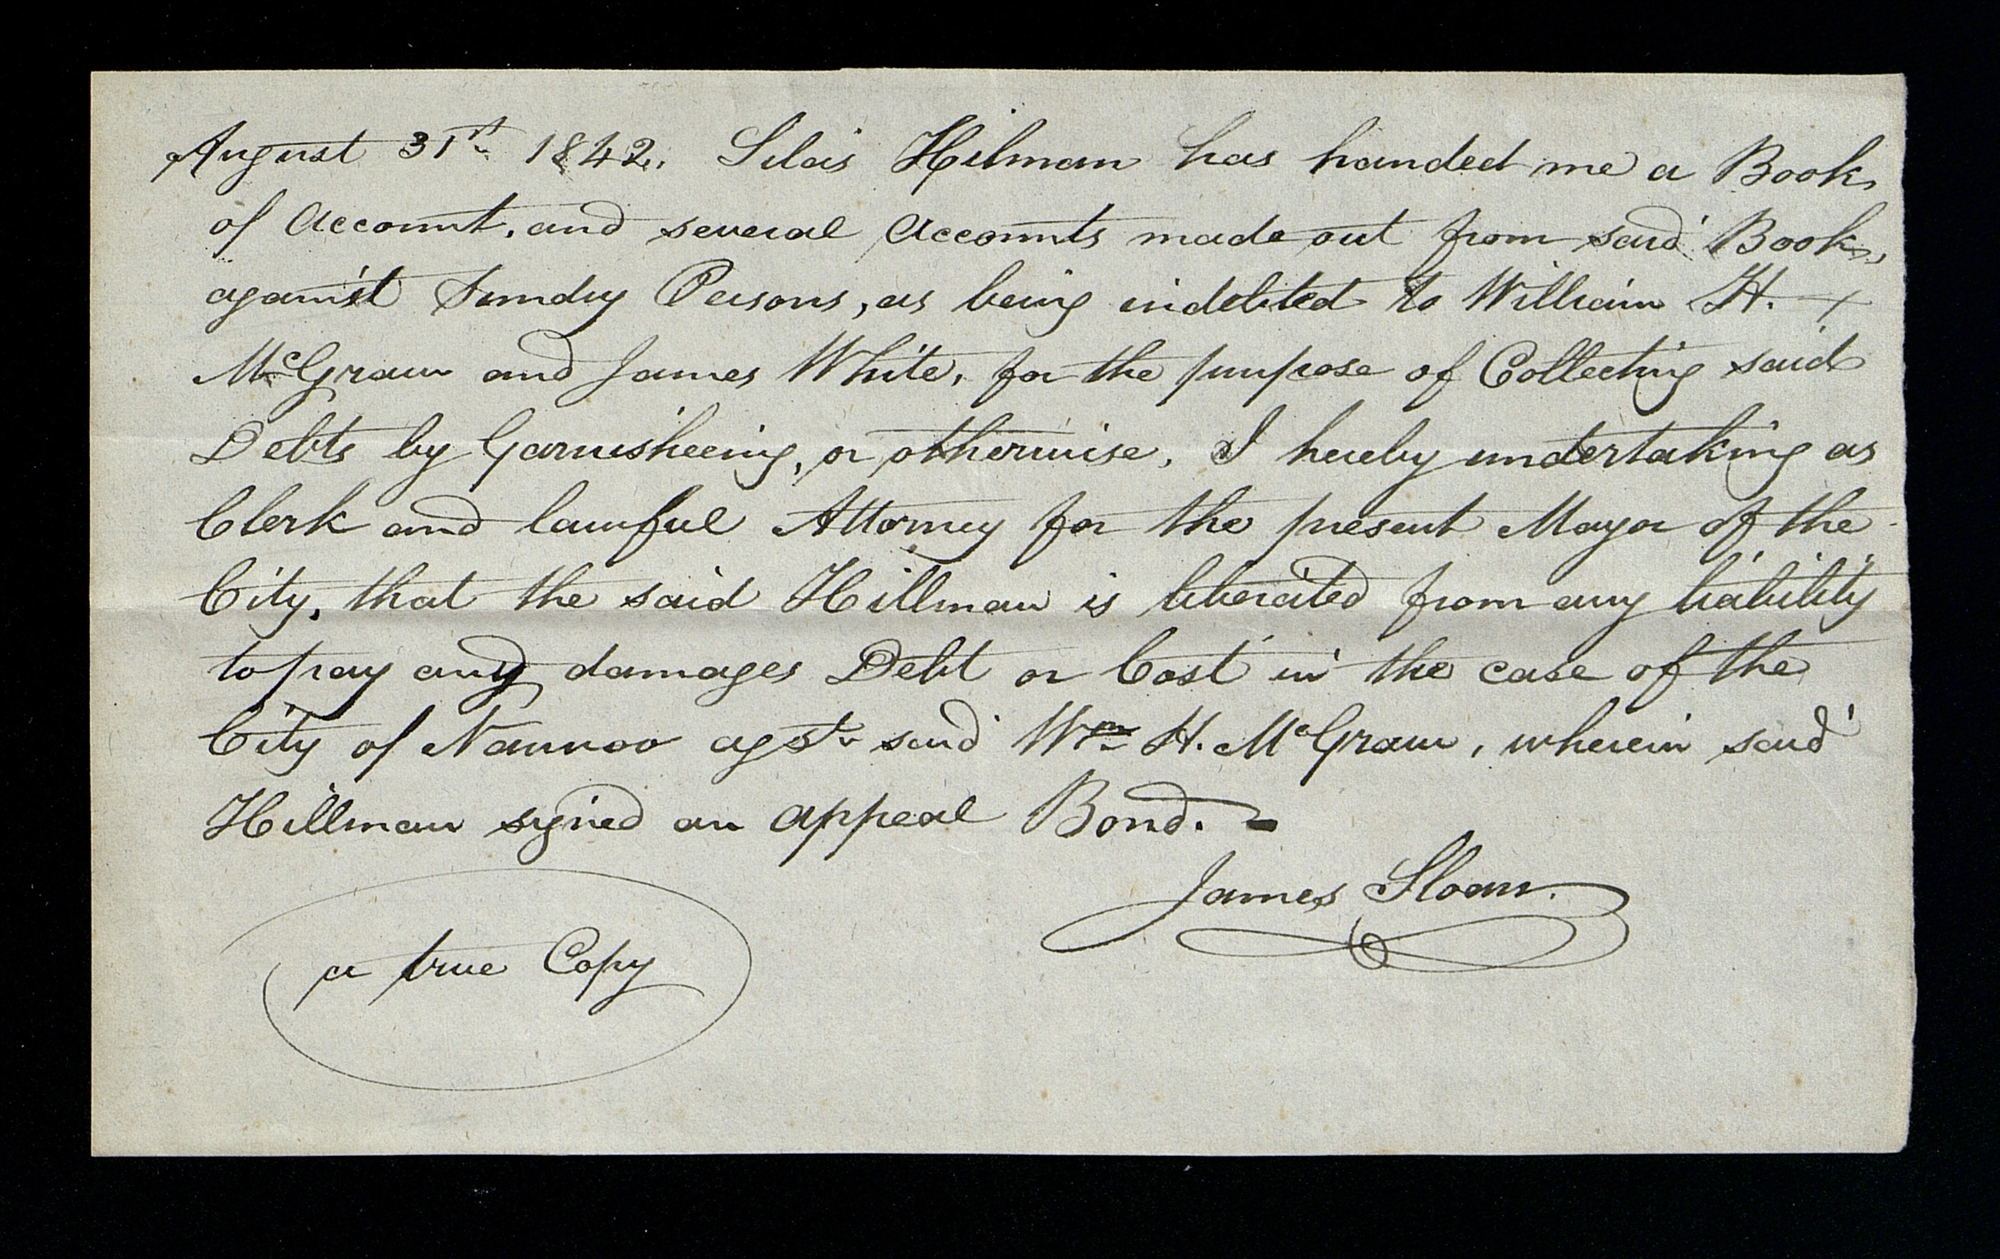 August 31st 1842. Silas Hilman has handed me a Book
of Account, and several Accounts made out from said Book,
against Sundry Persons, as being indebted to William H.
McGraw and James White, for the purpose of Collecting said
Debts by Garnisheeing, or otherwise, I hereby undertaking as
Clerk and lawful Attorney for the present Mayor of the
City, that the said Hillman is liberated from any liability
to pay any damages Debt or Cost in the case of the
City of Nauvoo agst said Wm H. McGraw, wherein said
Hillman signed an appeal Bond.
James Sloan.
a true Copy